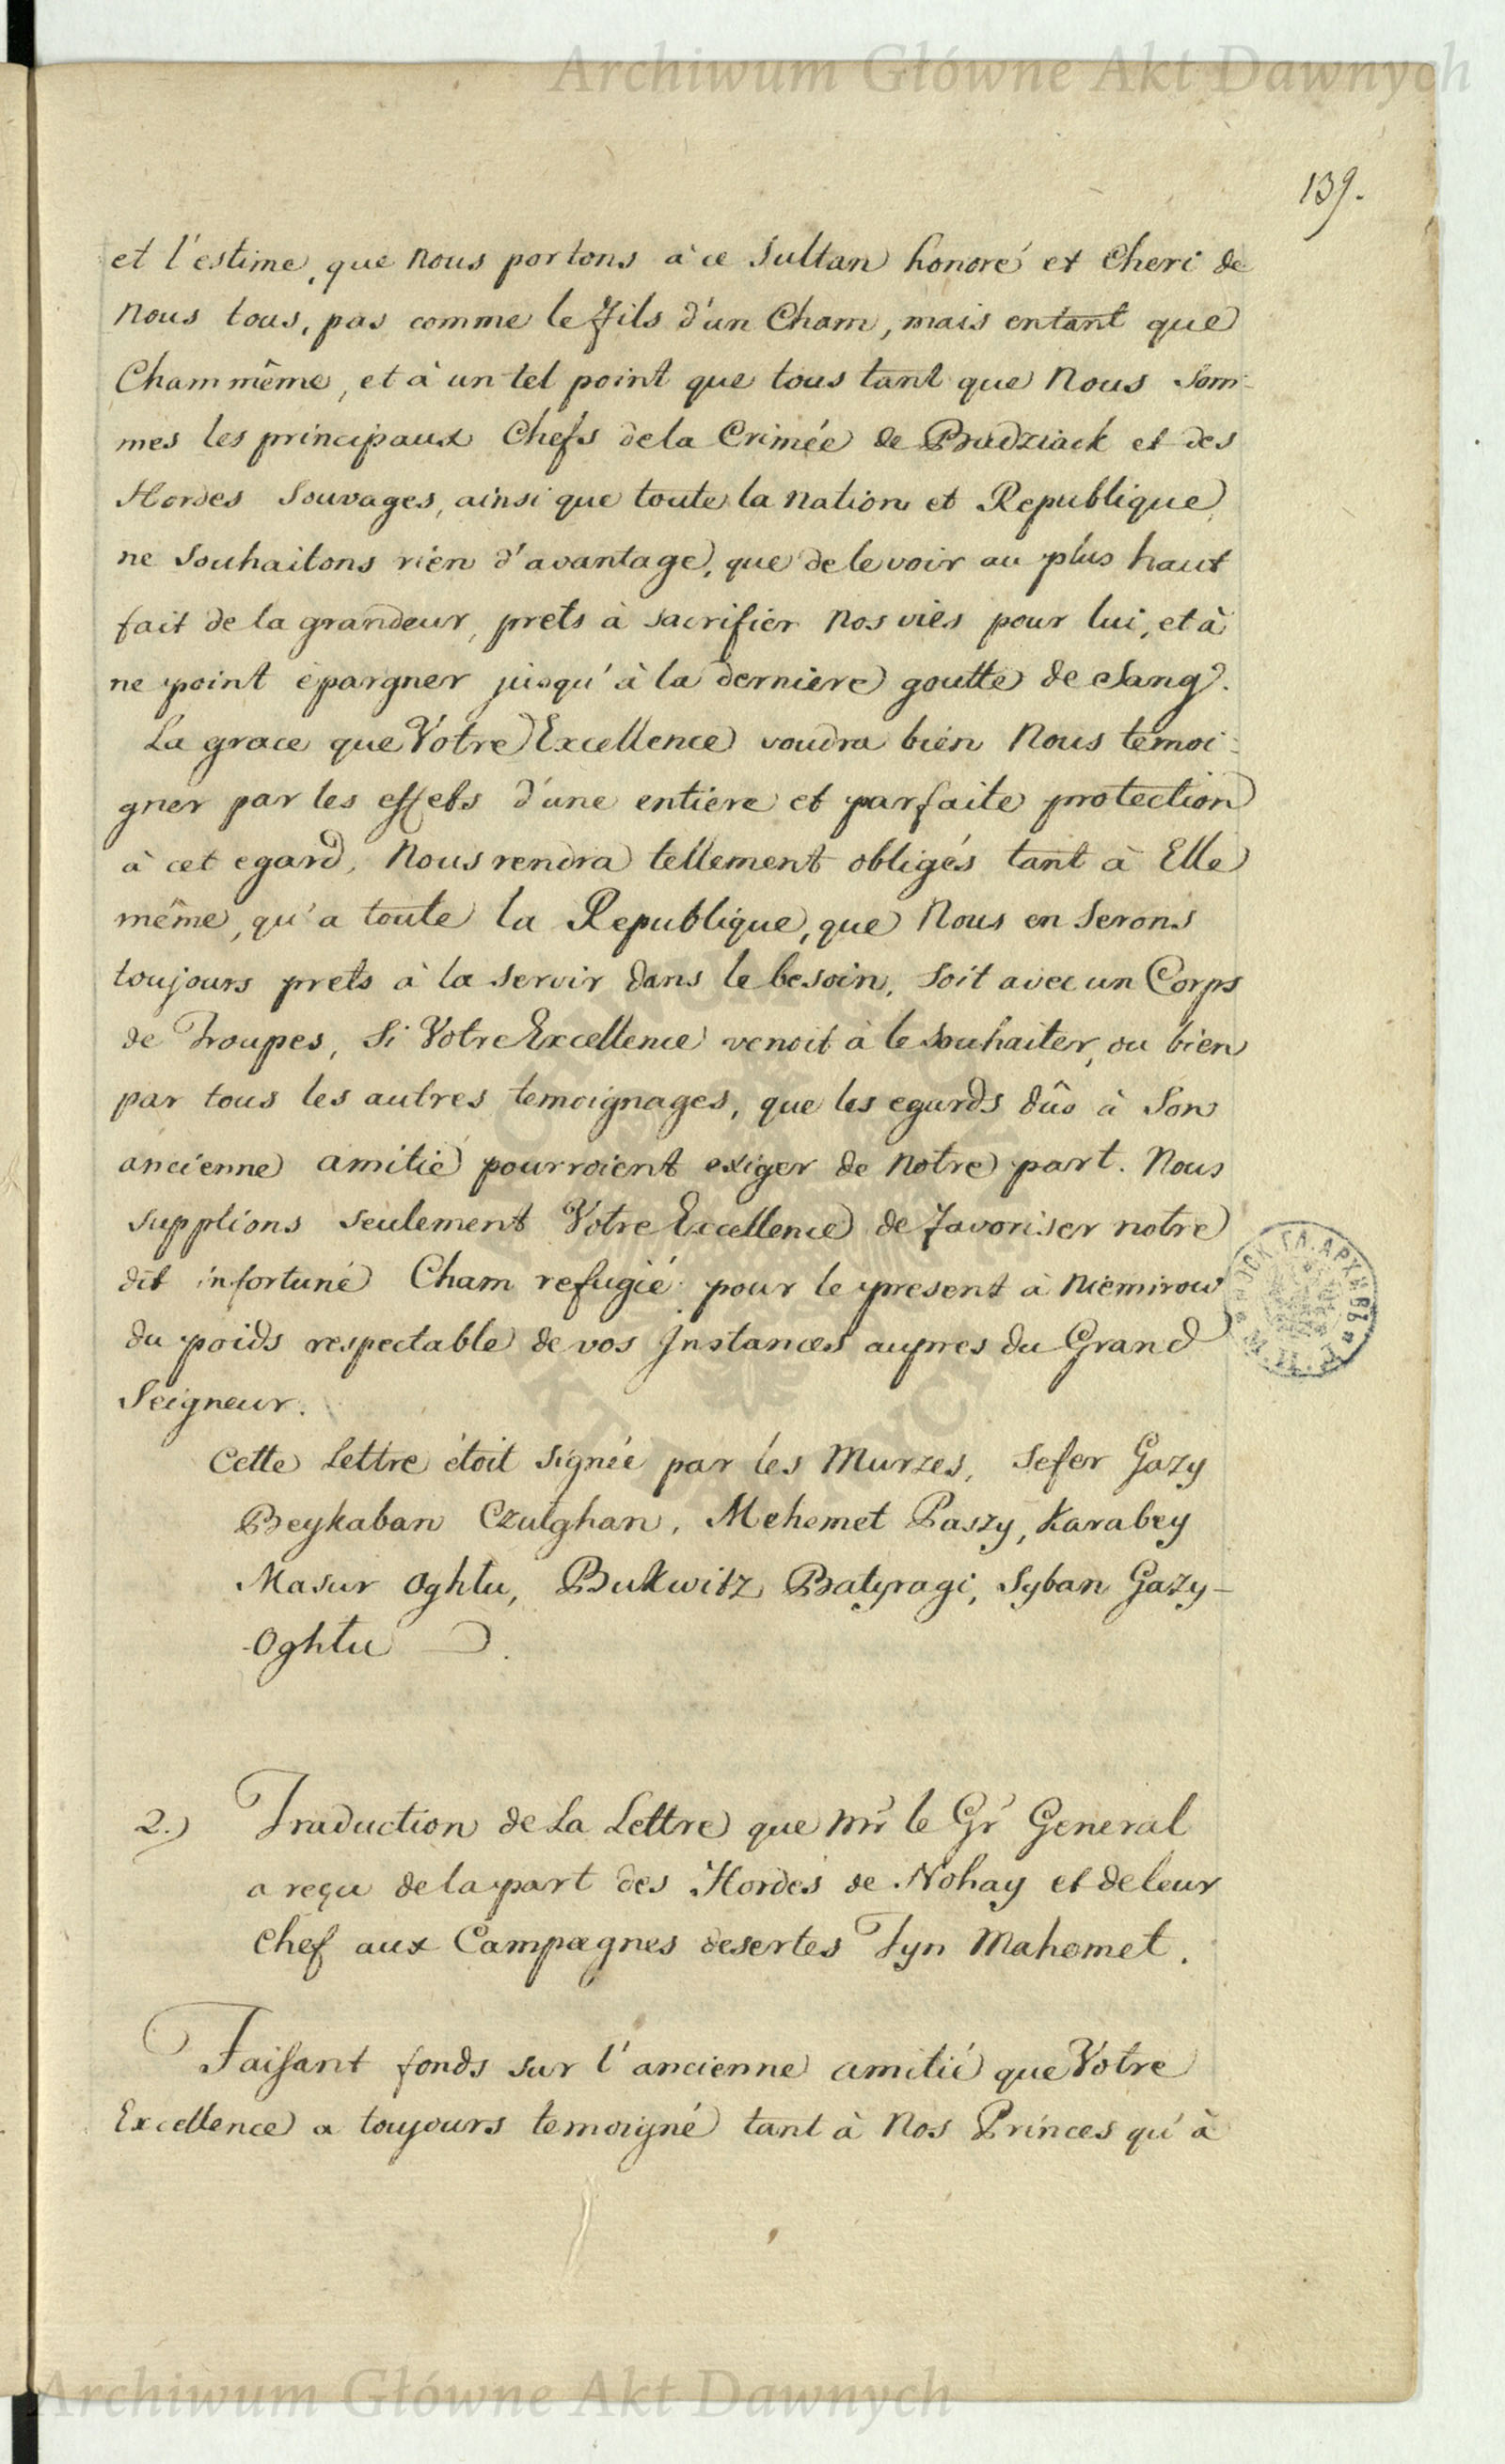 Archiwum Główne Akt Dawnych
139.
et l'estime, que Nous portons à ce Sultan honoré et Cheri de
Nous tous, pas comme le Fils d'un Cham, mais entant que
Cham même, et à un tel point que tous tant que Nous Som-
mes les principaux Chefs de la Crimée de Budziack et des
Hordes Souvages, ainsi que toute la Nation et Republique
ne Souhaitons rien d'avantage, que de le voir au plus haut
fait de la grandeur, prets à sacrifier Nos vies pour lui, et à
ne point epargner jusqu'à la derniere goutte de Sang.
La grace que Votre Excellence voudra bien Nous temoi-
gner par les effets d'une entiere et parfaite protection
à cet egard, Nous rendra tellement obligés tant à Elle
même, qu'a toute la Republique, que Nous en Serons
toujours prets à la Servir dans le besoin, Soit avec un Corps
de Troupes, Si Votre Excellence venoit à le Souhaiter, ou bien
par tous les autres temoignages, que les egards dûs à Son
ancienne amitié pourroient exiger de Notre part. Nous
supplions Seulement Votre Excellence de Favoriser notre
dit infortuné Cham refugié pour le present à Niemirow
du poids respectable de vos Instances aupres du Grand
Seigneur.
Cette Lettre étoit Signée par les Murzes, Sefer Gazy
Beykaban Czulghan, Mehemet Paszy, Karabey
Masur Oghlu, Bukwitz Batyragi, Syban Gazy-
-Oghlu
2.) Traduction de La Lettre que Mr le Gr General
a reçu de la part des Hordes de Nohay et de leur
Chef aux Campagnes desertes Tyn Mahomet.
Faisant fonds sur l'ancienne amitié que Votre
Excellence a toujours temoigné tant à Nos Princes qu'à
Archiwum Główne Akt Dawnych